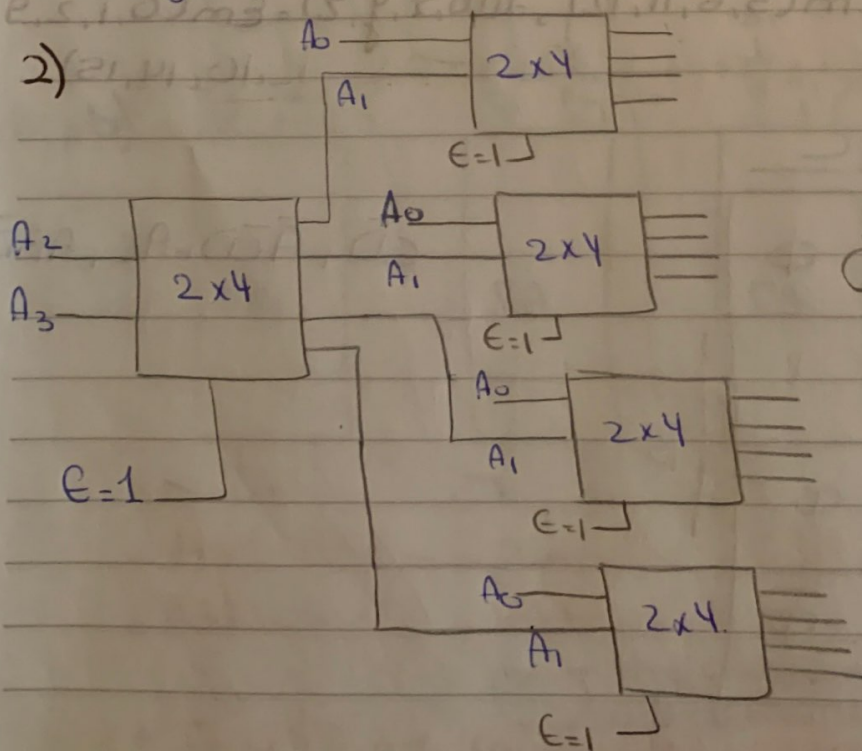 2)
A0
A1
2x4
E=1
A2
A3
2x4
E=1
A0
A1
2x4
E=1
A0
A1
2x4
E=1
A0
A1
2x4
E=1